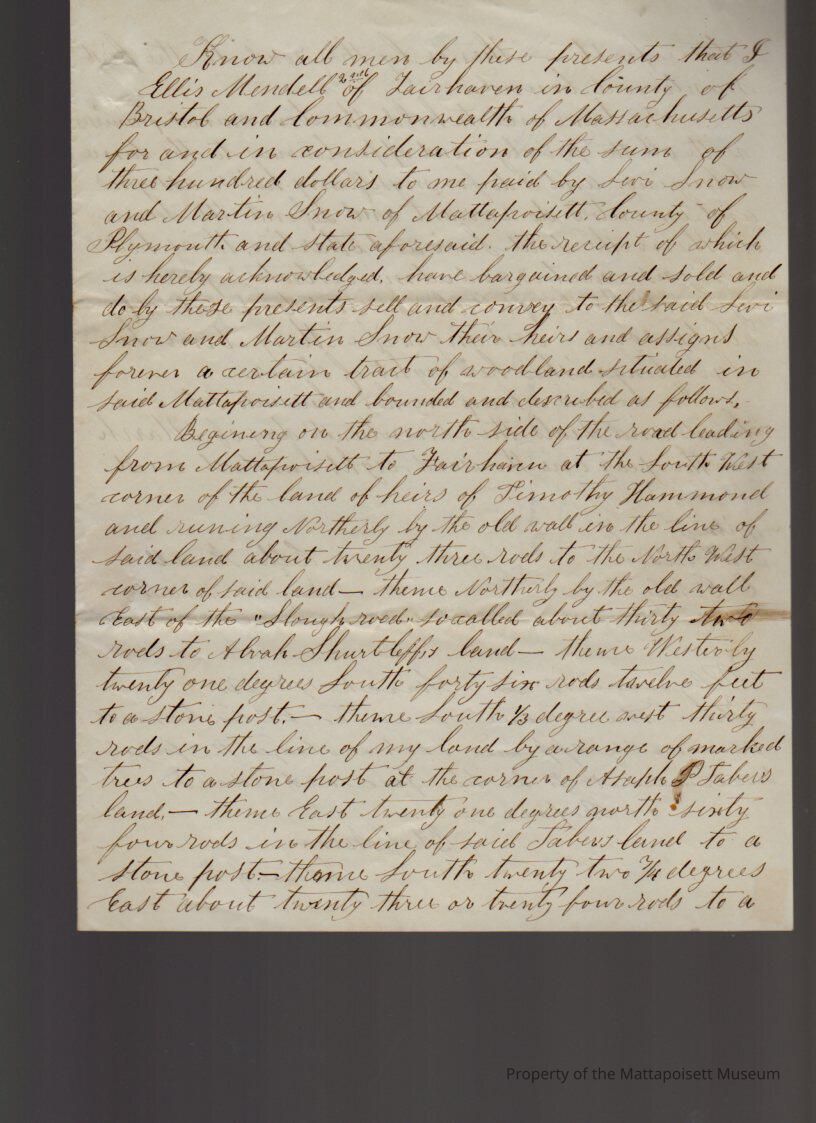 Know all men by these presents that I
Ellis Mendell 2nd of Fairhaven in County of
Bristol and Commonwealth of Massachusetts
for and in consideration of the sum of
three hundred dollars to me paid by Levi Snow
and Martin Snow of Mattapoisett, County of
Plymouth and state aforesaid. the receipt of which
is hereby acknowledged, have bargained and sold and
do by these presents sell and convey to the said Levi
Snow and Martin Snow their heirs and assigns
forever a certain tract of woodland situated in
said Mattapoisett and bounded and described as follows,
Begining on the north side of the road leading
from Mattapoisett to Fairhaven at the South West
corner of the land of heirs of Timothy Hammond
and runing Northerly by the old wall in the line of
said land about twenty three rods to the North West
corner of said land — thence Northerly by the old wall
East of the "Slough road" so called about thirty two
rods to Alvah Shurtleffs land — thence Westerly
twenty one degrees South forty six rods twelve feet
to a stone post. — thence South 1/3 degree west thirty
rods in the line of my land by a range of marked
trees to a stone post at the corner of Asaph P Tabers
land, — thence East twenty one degrees north sixty
four rods in the line of said Tabers land to a
stone post — thence South twenty two 3/4 degrees
East about twenty three or twenty four rods to a
Property of the Mattapoisett Museum